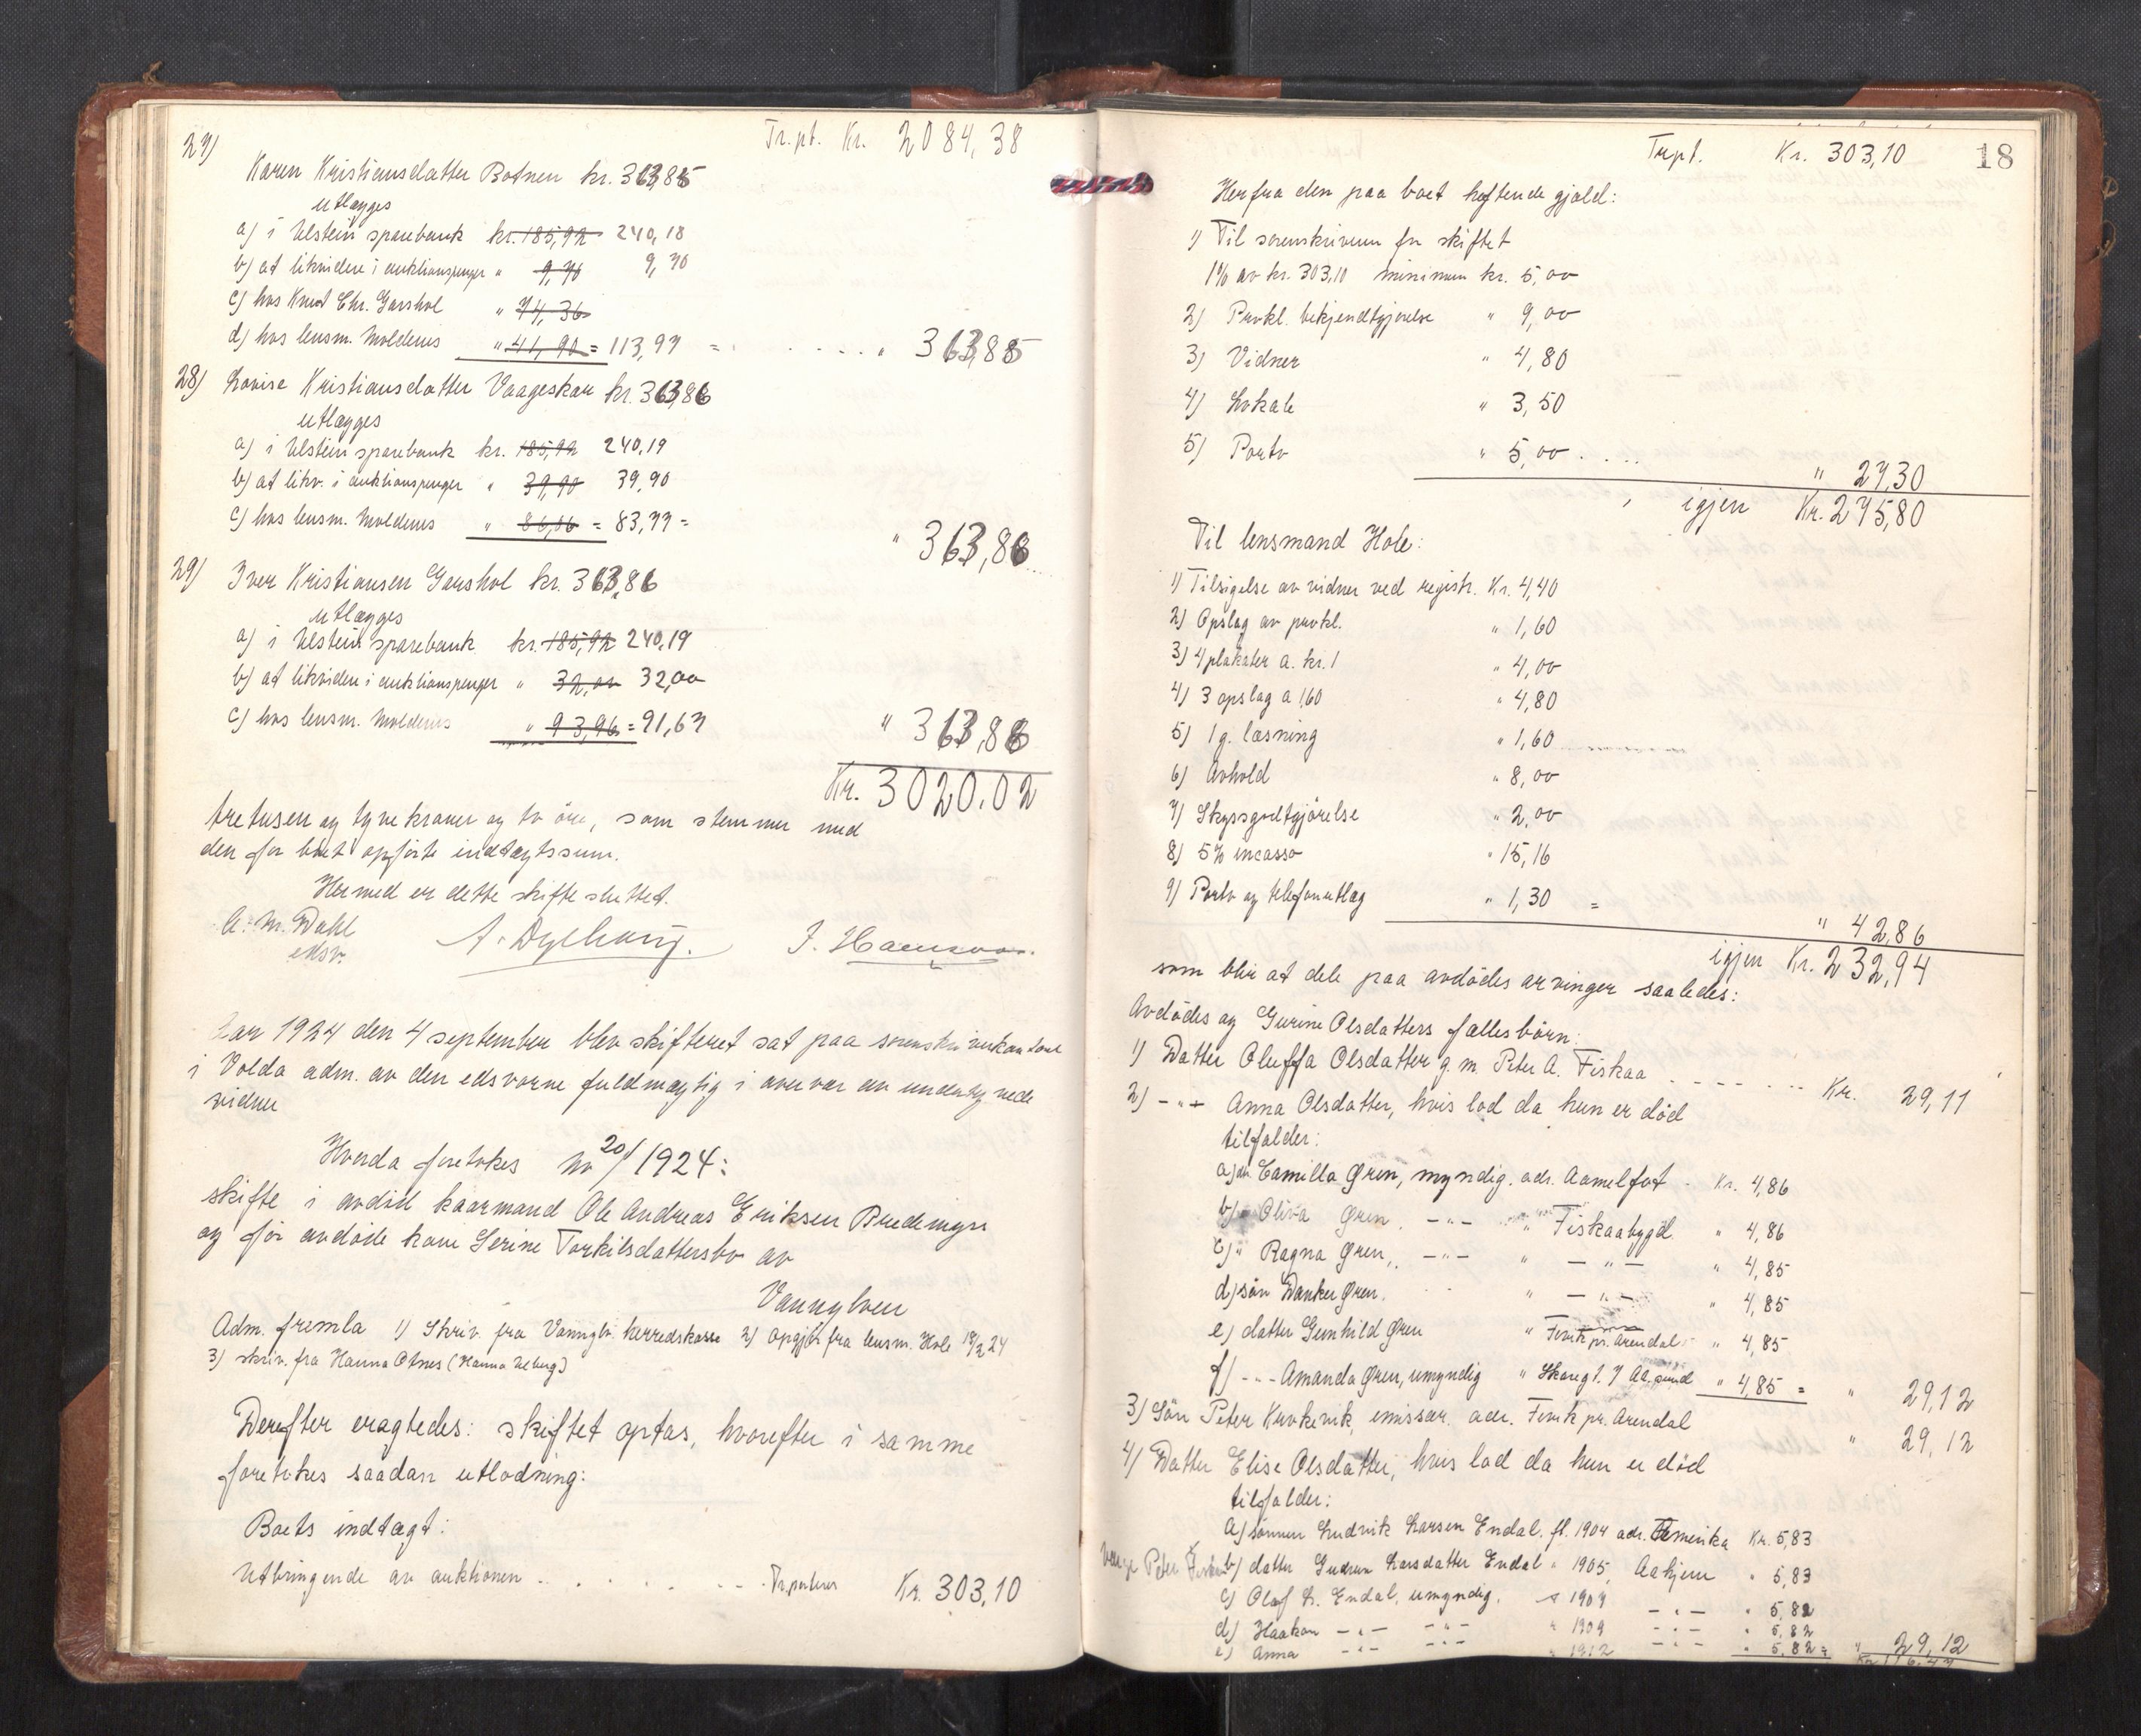 Tr.pt. Kr. 2084,38
27)
Karen Kristiansdatter Botnen kr. 363,85
utlægges
a) i Ulstein sparebank kr. 185,92 240,18
b) at likvidere i auktionspenger " 9,70 9,70
c) hos Knut Chr. Garshol " 74,36
d) hos lensm. Molderus " 41,90 = 113,97 = " 363,85
28) Lovise Kristiansdatter Vaageskar kr. 363,86
utlægges
a) i Ulstein sparebank kr. 185,92 240,19
b) at likv. i auktionspenger " 39,90 39,90
c) hos lensm. Molderus " 86,06 = 83,77 =
" 363,86
29) Iver Kristiansen Garshol kr. 363,86
utlægges
a) i Ulstein sparebank kr. 185,92 240,19
b) at likvidere i auktionspenger " 32,00 32,00
c) hos lensm. Molderus " 93,96 = 91,67 " 363,86
Kr. 3020.02
tretusen og tyve kroner og to øre, som stemmer med
den for boet opførte indtægtssum.
Hermed er dette skifte sluttet.
A. M. Dahl
edsv.
Aar 1924 den 4 september blev skifteret sat paa sorenskriverkontoret
i Volda adm. av den edsvorne fuldmægtig i overvær av undertegnede
vidner
Hvorda foretokes No 20/1924:
skifte i avdød kaarmand Ole Andreas Eriksen Bredemyr
og før avdøde kone Serine Torkilsdattersbo av
Vannylven
Adm. fremla 1) Skriv. fra Vannylv. herredskasse 2) Opgjør fra lensm. Hole 18/2 24
3) skriv. fra Hanna Otnes (Hanna Ueberg)
Derefter eragtedes: skiftet optas, hvorefter i samme
foretokes saadan utlodning:
Boets indtægt:
Utbringende av auktionen . . . . . Tr.porteres Kr. 303,10
Trpt. Kr. 303,10 18
Herfra den paa boet heftende gjæld:
1) Til sorenskriveren for skiftet
1% av kr. 303,10 minimum kr. 5,00
2) Prokl. bekjendtgjørelse " 9,00
3) Vidner " 4,80
4) Lokale " 3,50
5) Porto " 5,00 . . . .
" 27,30
igjen Kr. 275,80
Til lensmand Hole:
1) Tilsigelse av vidner ved registr. Kr. 4,40
2) Opslag av prokl. " 1,60
3) 4 plakater a. kr. 1 " 4,00
4) 3 opslag a 1,60 " 4,80
5) 1 g. læsning " 1,60
6) Avhold " 8,00
7) Skyssgodtgjørelse " 2,00
8) 5% incasso " 15,16
9) Porto og telefonutlæg " 1,30 =
" 42,86
igjen Kr. 232,94
som blir at dele paa avdødes arvinger saaledes:
Avdødes og Gurine Olsdatters fællesbørn:
1) Datter Oluffa Olsdatter g. m. Peter A. Fiskaa . . . . . Kr. 29,11
2) - " - Anna Olsdatter, hvis lod da hun er død
tilfalder:
a) dtr Camilla Øren, myndig. adr. Aamelfot - Kr. 4,86
b) " Oliva Øren, - " - " Fiskaabygd " 4,86
c) " Ragna Øren, - " - " - " - " 4,85
d) søn Danker Øren. " - " - " 4,85
e) datter Gunhild Øren " Fevik pr. Arendal " 4,85
f) - " - Amanda Øren, umyndig " Skaregt. 7 Aa.sund " 4,85 = " 29,12
3) Søn Peter Krokvik, emissær. adr. Fevik pr. Arendal " 29,12
4) Datter Elise Olsdatter, hvis lod da hun er død
tilfalder:
a) sønnen Ludvik Larsen Endal. fl. 1904 adr. Amerika Kr. 5,83
Verge Peter Fiskaa b) datter Gudrun Larsdatter Endal " 1905, Aahjem " 5,83
c) Olaf L. Endal, umyndig. " 1907 - " - " 5,82
d) Haakon - " - - " - " 1909 - " - " 5,82
e) Anna - " - - " - " 1912 - " - " 5,82 = " 29,12
Kr. 116,47